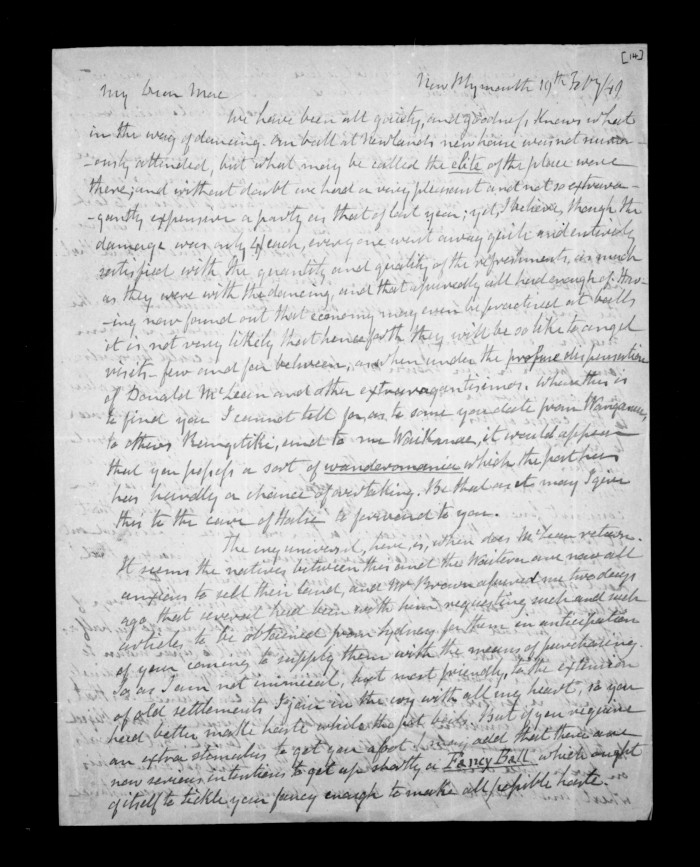 [14]
New Plymouth 19th Feby/49
My Dear Mac
We have been all gaiety, and goodness knows what
in the way of dancing. Our ball at Newlands new house was not numer-
-ously attended, but what may be called the elite of the place were
there; and without doubt we had a very pleasant and not so extrava-
-gantly expensive a party as that of last year; yet, I believe, though the
damage was only each, every one went away quite and entirely
satisfied with the quantity and quality of the refreshments, as much
as they were with the dancing, and that assuredly all had enough of. Hav-
-ing now found out that economy may even be practised at balls
it is not very likely that henceforth they will be so like to angel
visits - few and far between, as when under the profuse dispensation
of Donald McLean and other extravagantissimos. Where this is
to find you I cannot tell for, as to some you date from Wanganui,
to others Rangitiki, and to me Waikanae, it would appear
that you possess a sort of wanderomania which the post
has hardly a chance of overtaking. Be that as it may I give
this to the care of Halse to forward to you.
The cry universal, here, is, when does McLean return.
It seems the natives between this and the Waitera are now all
anxious to sell their land, and Mr Brown assured me two days
ago that several had been with him requesting such and such
articles to be obtained from Sydney for them in anticipation
of your coming to supply them with the means of purchasing.
So, as I am not inimical, but most friendly, to the extension
of old settlements I join in the cry with all my heart, so you
had better make haste while the pot boils. But if you require
an extra stimulus to get you afoot I may add that there are
now serious intentions to get up shortly a Fancy Ball, which ought
of itself to tickle your fancy enough to make all possible haste.